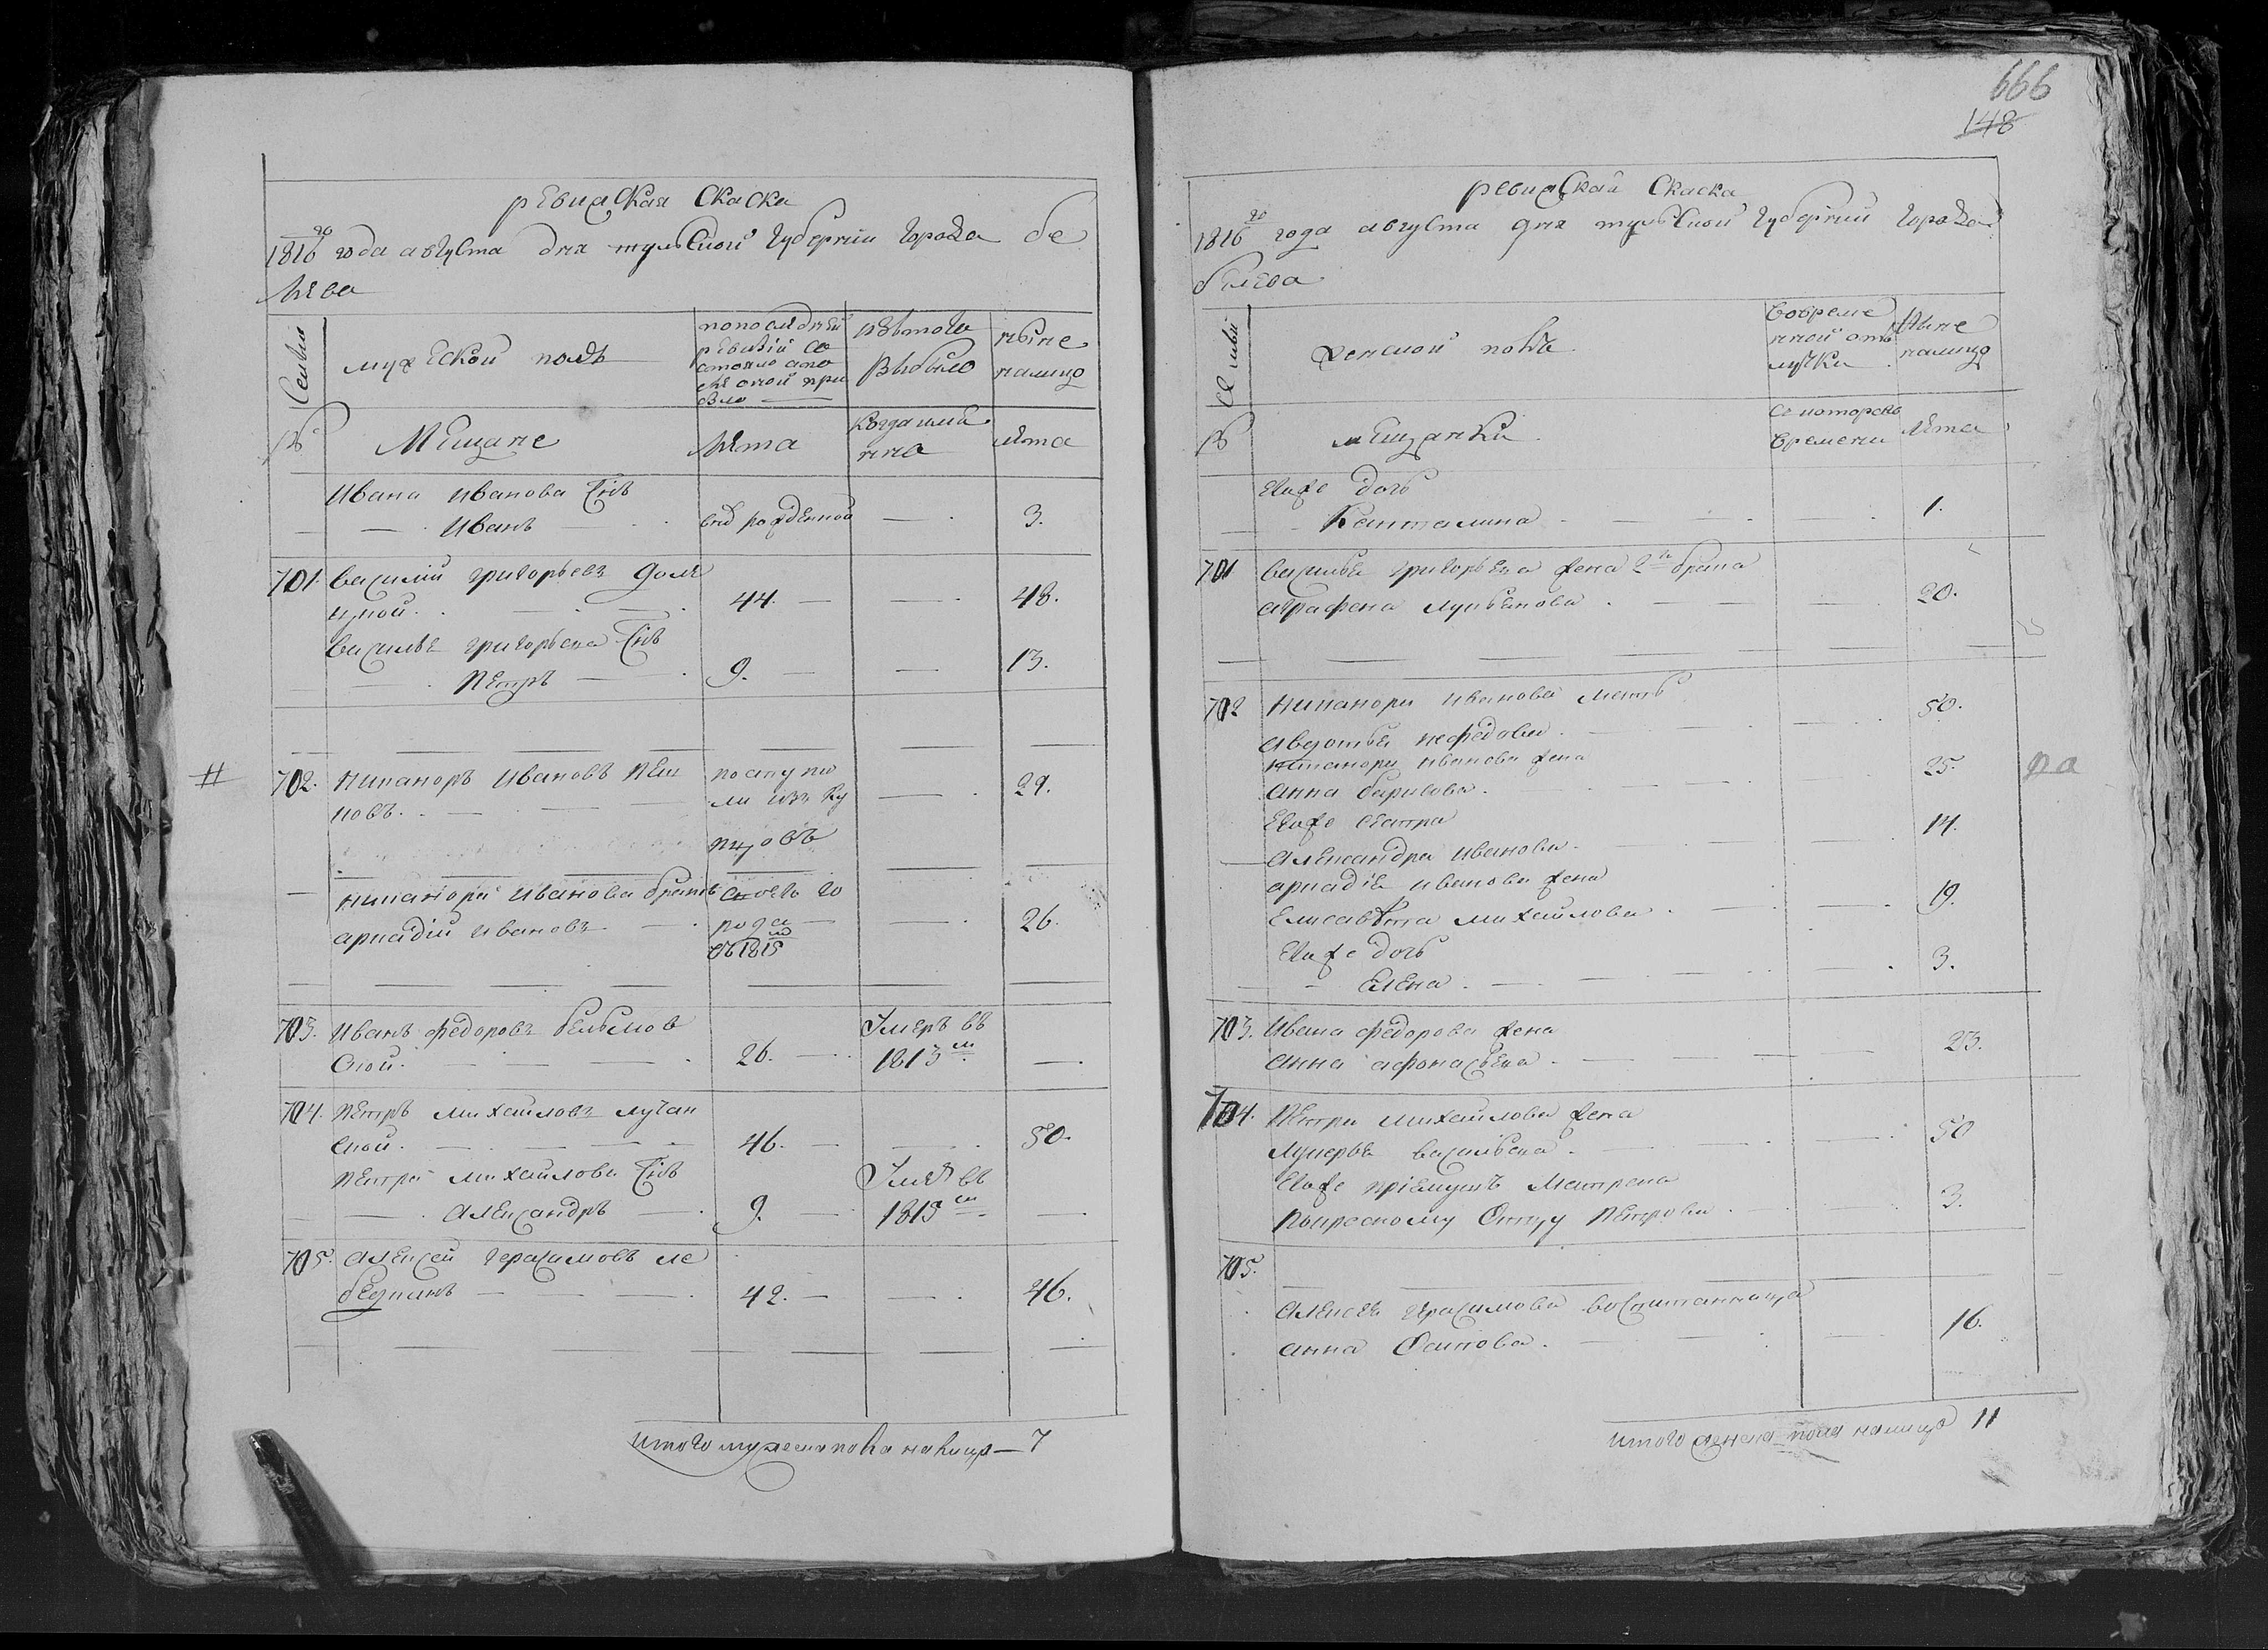 ревизская Скаска
1816го года августа дня тульской губернии города бе
лева
Семьи
мужеской полъ
попоследней
ревизіи со
стояло ипо
сле оной при
было
изътого
выбыло
ныне
налицо
№
Мещане
лета
когда имян
нно
лета
Ивана Иванова Снъ
Иванъ
внов рожденной
3.
701. василій григорьевъ Долб
цкой.
44.
48.
василья григорьева Снъ
Петръ
9.
13.
702. Никаноръ Ивановъ Пеш
ковъ.
поступи
ли изъ ку
пцовъ
29.
никанора Иванова братъ
аркадій Ивановъ
сего го
рода
въ 1815м
26.
703. Иванъ федоровъ бельмов
ской.
26.
Умеръ въ
1813м.
704. Петръ михайловъ лучан
ской.
46.
50.
Петра михайлова Снъ
александръ
9.
Умеръ въ
1815м
705. Алексей герасимовъ ле
бедкинъ
42.
46.
итого мужеска пола налицо 7
666
148
ревизской Скаска
1816го года августа дня тульской губернии города
белева
Семьи
женской полъ
вовреме
нной отъ
лучки
Ныне
налицо
№
мещанки
скоторого
времени
Лета
Егоже дочь
1.
701 василья григорьева жена 2го брака
аграфена лукьянова
20.
702 никанора иванова мать
авдотья нефедова
50.
никанора иванова жена
Анна борисова.
25.
Егоже сестра
александра иванова
14.
аркадія иванова жена
Елисавета михайлова
19.
Егоже дочь
Елена
3.
ра
703. Ивана федорова жена
анна афонасьева
23.
704. Петра михайлова жена
лукерья васильева.
50
Егоже пріемышъ Матрена
покресному отцу Петрова
3.
705.
Алексея герасимова воспитанница
анна Осипова.
16.
итого женска пола налицо 11